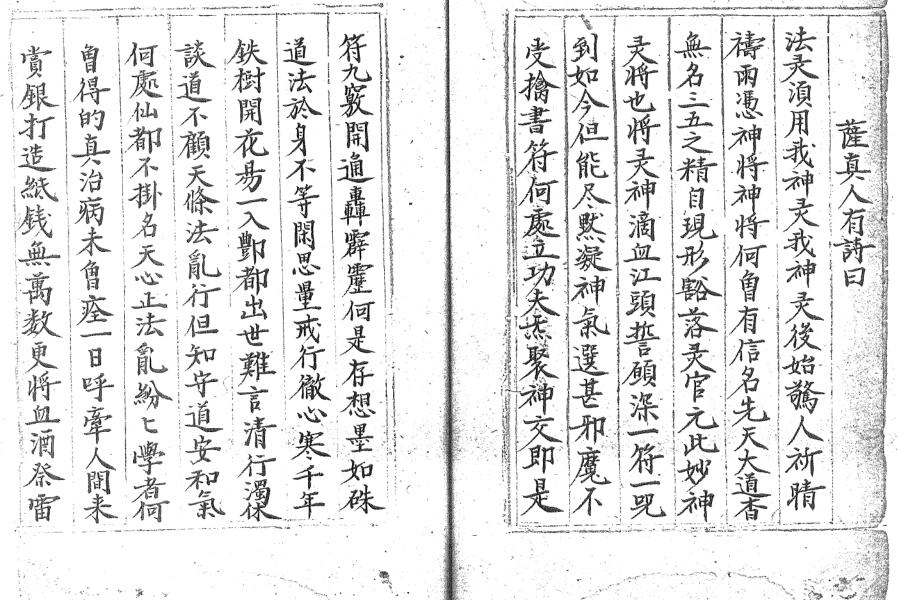 薩真人有詩曰
法灵須用我神灵我神灵後始驚人祈晴
禱雨慿神將神將何曽有信名先天大道杳
無名三五之精自現形豁落灵官元此妙神
灵將也將灵神滴血江頭誓願深一符一咒
到如今但能尽默凝神氣選甚邪魔不
受擒書符何處立功夫炁聚神交即是
符九竅開通轟霹靂何是存想墨如硃
道法於身不等閑思量戒行徹心寒千年
鉄樹開花易一入酆都出世難言清行濁休
談道不顧天條法亂行但知守道安和氣
何處仙都不掛名天心正法亂紛匕學者何
曽得的真治病未曽痊一日呼牽人間来
賞銀打造紙錢無萬数更將血酒祭雷